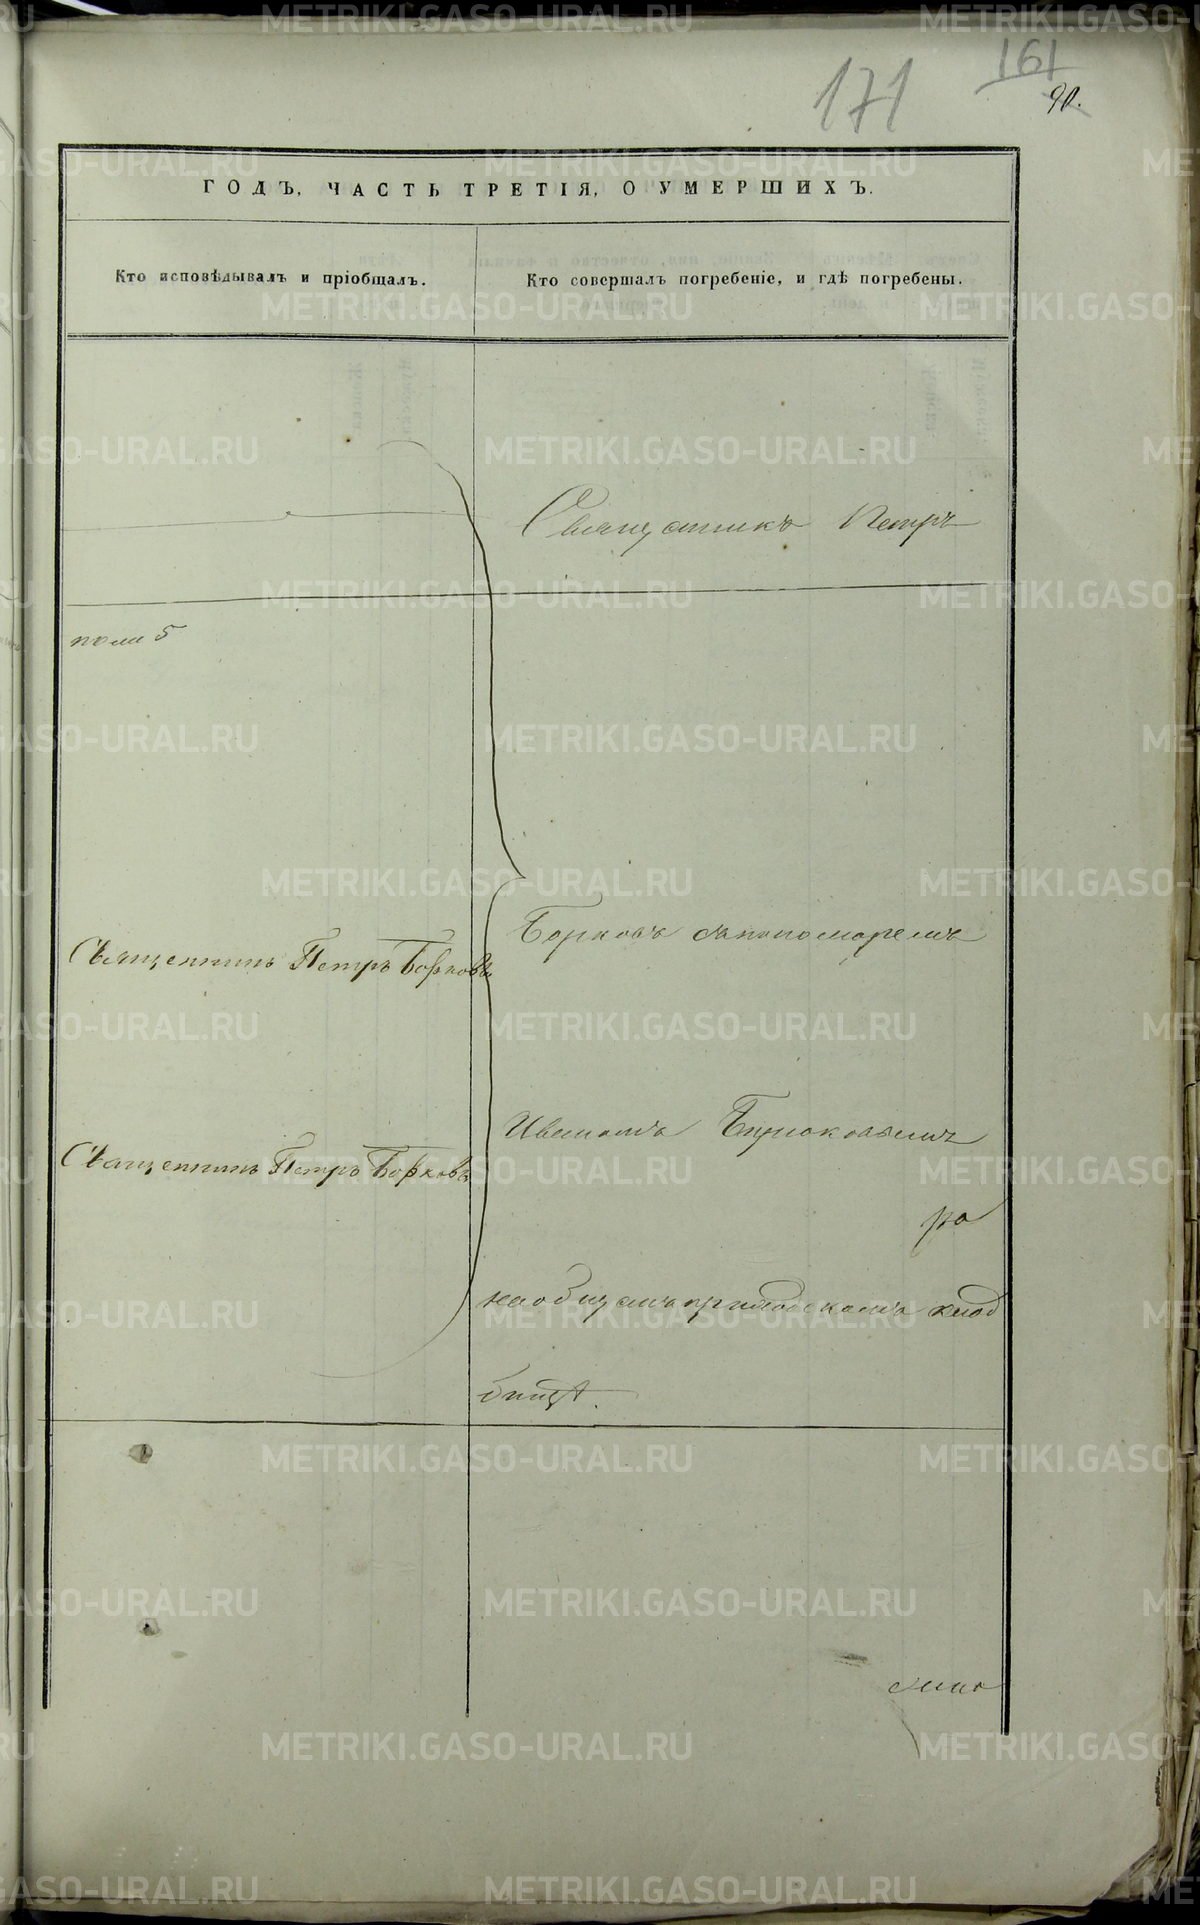 171
161
90.
ГОДЪ, ЧАСТЬ ТРЕТІЯ, О УМЕРШИХЪ.
Кто исповѣдывалъ и пріобщалъ.
Кто совершалъ погребеніе, и гдѣ погребены.
Священникъ Петръ
поли 5
Борковъ съ пономаремъ
Священникъ Петръ Борковъ
Иваномъ Бирюковымъ
Священникъ Петръ Борковъ
на общемъ приходскомъ клад
бищѣ.
METRIKI.GASO-URAL.RU